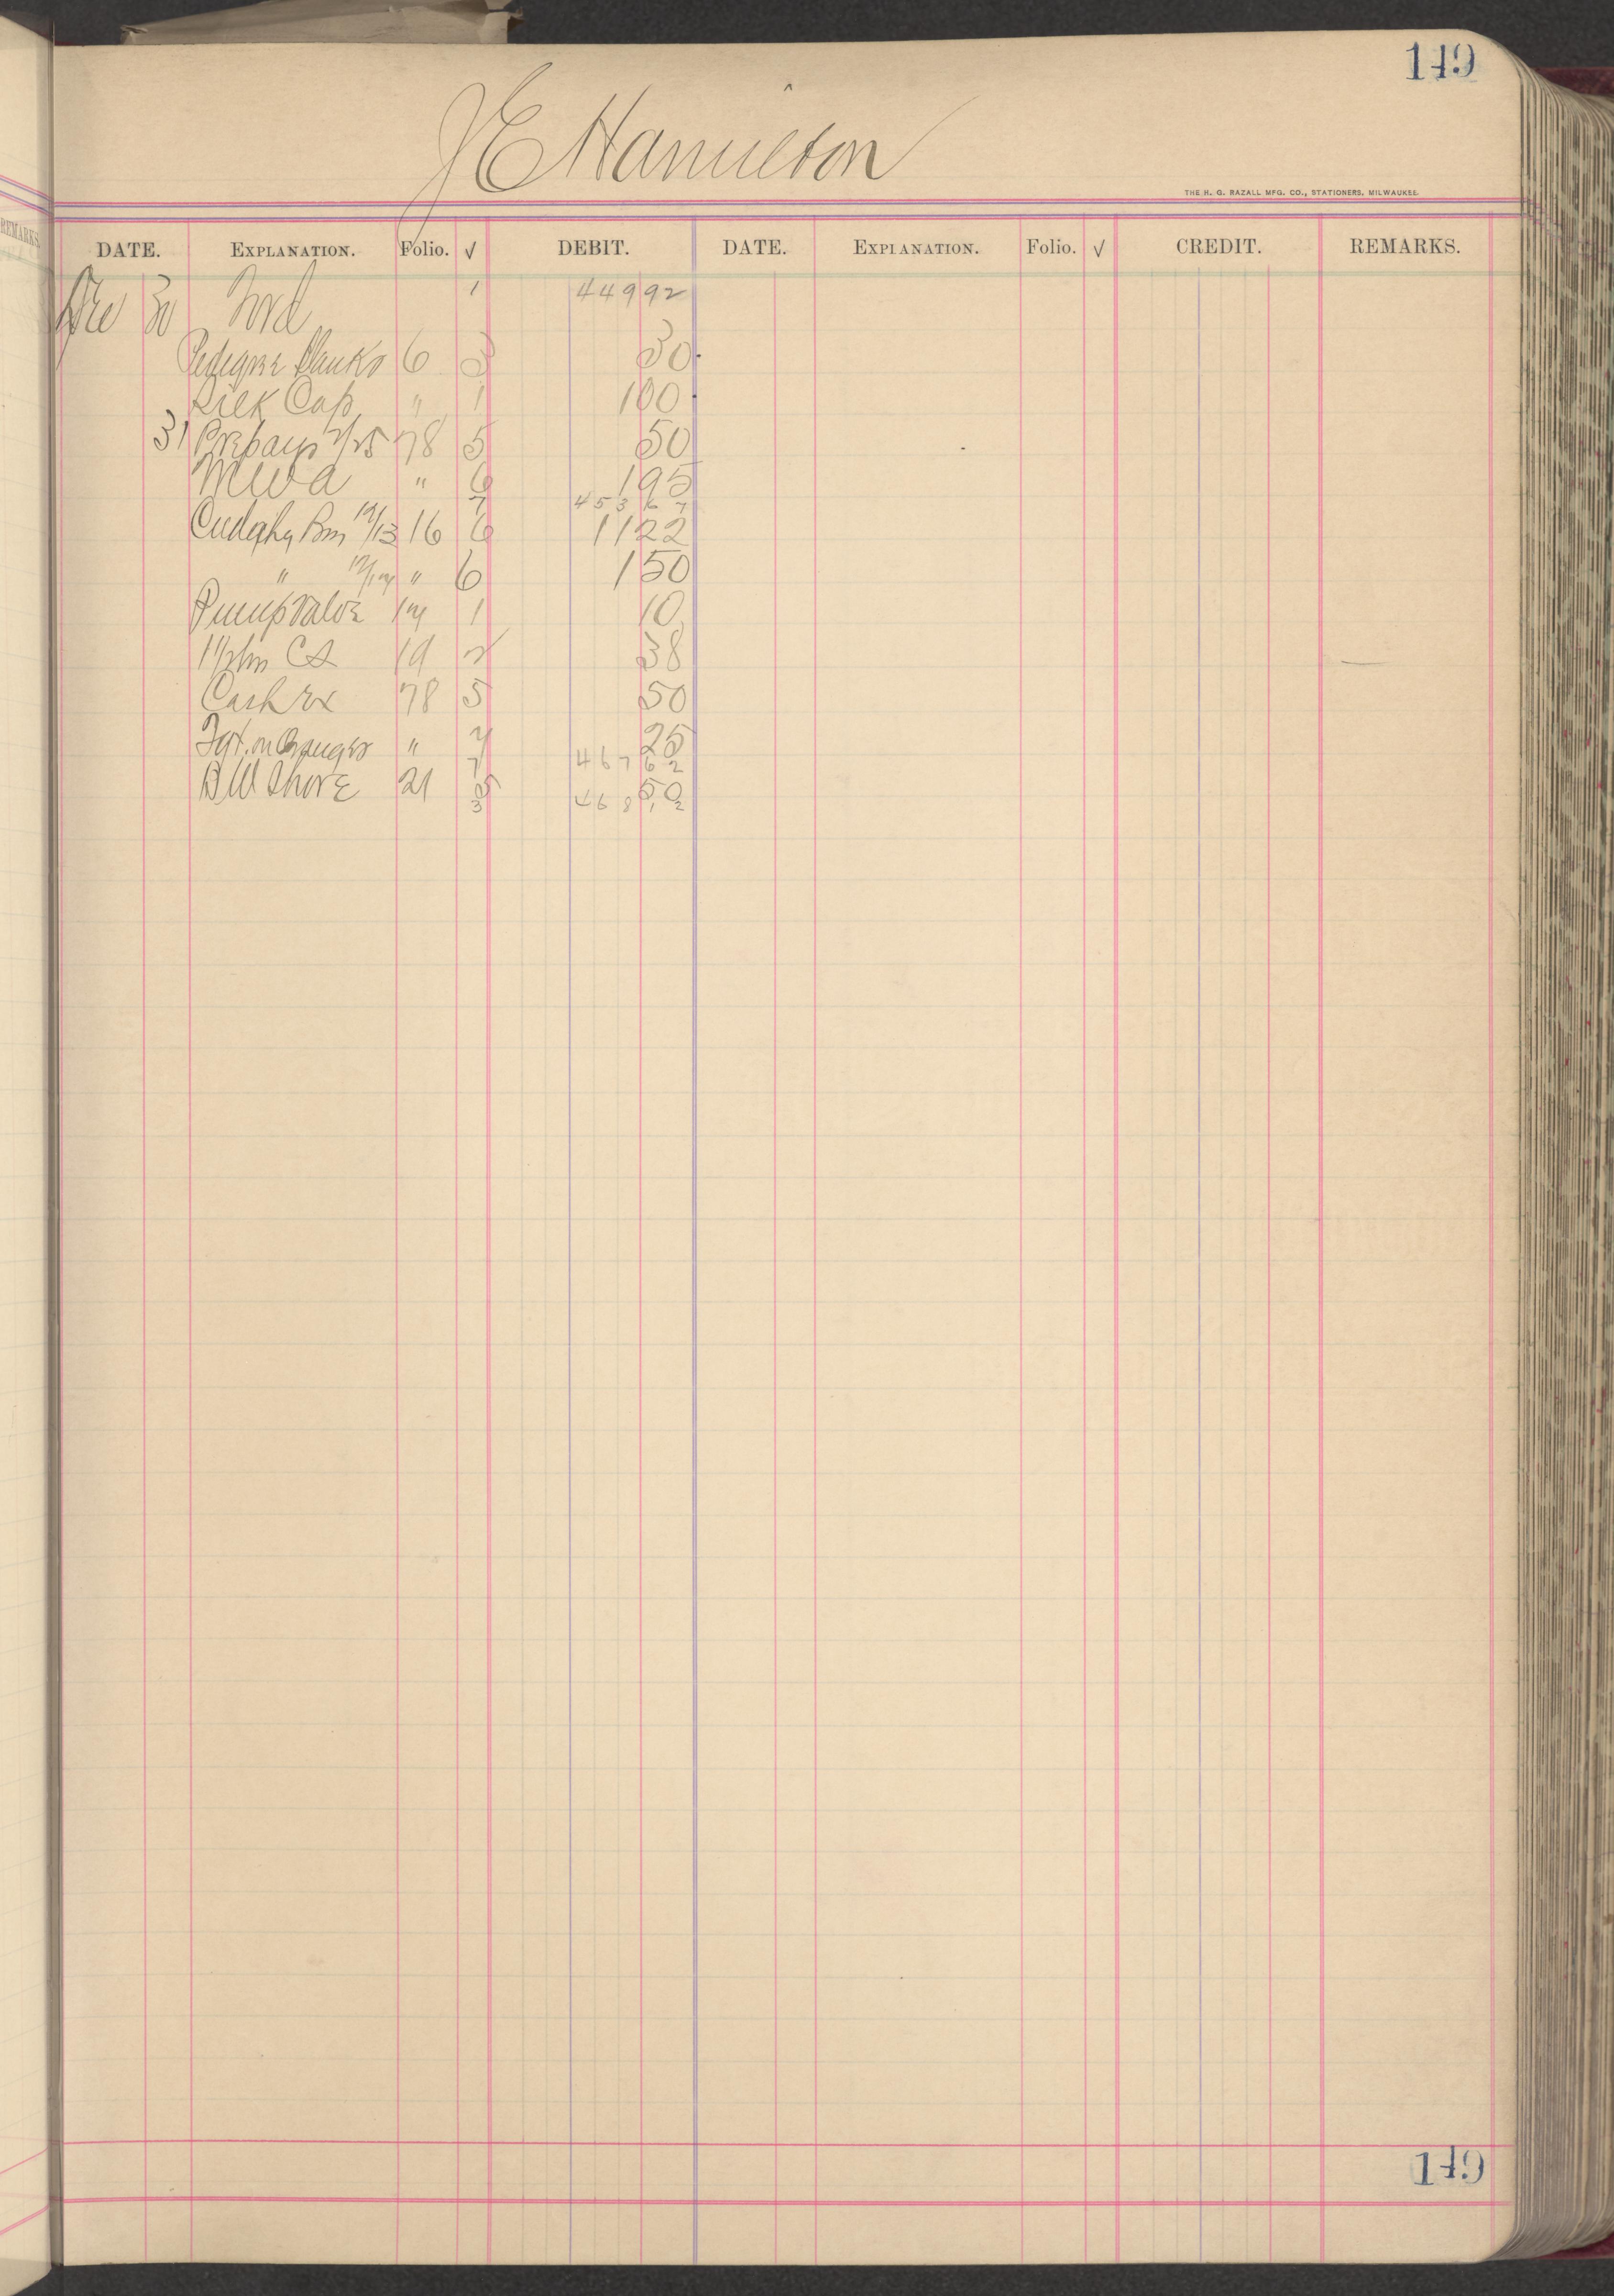 149
J E Hamilton
THE H. G. RAZALL MFG. CO., STATIONERS, MILWAUKEE.
REMARKS.
DATE. EXPLANATION. Folio. √ DEBIT. DATE. EXPLANATION. Folio. √ CREDIT. REMARKS.
Dec 30 Ford 1 449 92
Pedigree Blanks 6 3 30
Silk Cap " 1 1 00
31 Prepays 78 5 50
MWA " 6 1 95
7 453 67
Cudahy Bm 12/13 16 6 11 22
" " 6 1 50
Pump Valve 1 10
19 38
Cash Rx 78 5 50
Fgt. on Oranges " 25
7 467 62
B W Shore 21 5 50
3 468 12
149